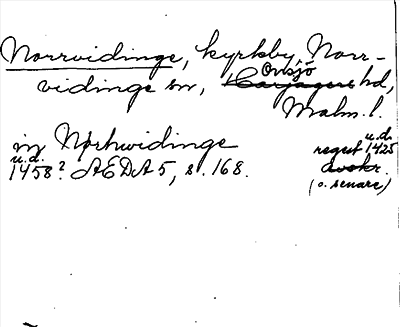 Norrvidinge, kyrkby, Norr-
vidinge sn, Onsjö
Harjagers hd,
Malm. l.
in Nørhwidinge
u.d.
1458? ÆDA 5, s. 168.
u.d.
regest 1425
avskr.
(o. senare)